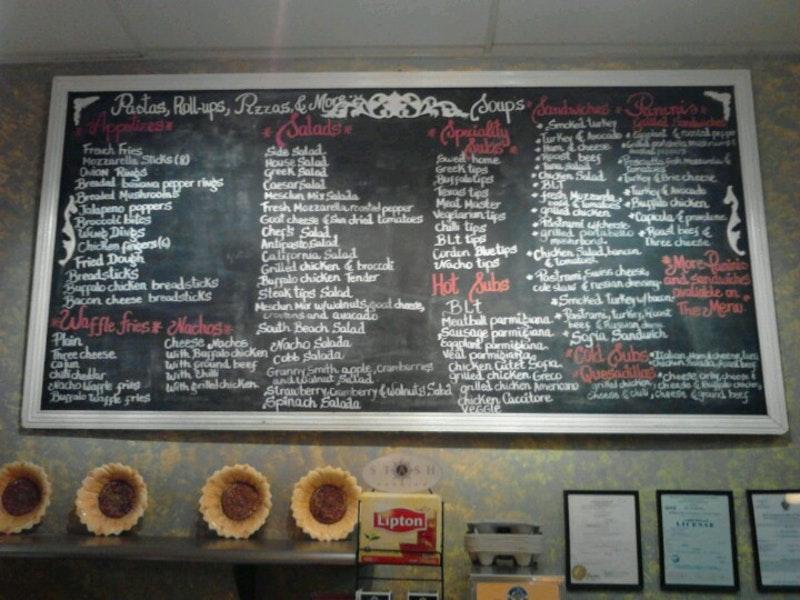 Pastas, Roll-ups, Pizzas, & More
Soups
Appetizes
French Fries
Mozzarella Sticks (8)
Onion Rings
Breaded banana pepper rings
Breaded Mushrooms
Jalapeno poppers
Broccoli bites
Wing Dings
Chicken fingers (6)
Fried Dough
Breadsticks
Buffalo chicken breadsticks
Bacon cheese breadsticks
Waffle fries
Plain
Three cheese
cajun
chili cheddar
Nacho Waffle fries
Buffalo Waffle fries
Nachos
Cheese Nachos
With Buffalo chicken
With ground beef
With chilli
With grilled chicken
Salads
Side Salad
House Salad
Greek Salad
Caesar Salad
Mesclun Mix Salada
Fresh Mozzarella roasted pepper
Goat cheese & sun dried tomatoes
Chef's Salad
Antipasto Salad
California Salad
Grilled chicken & broccoli
Buffalo chicken Tender
Steak tips Salad
Mesclun Mix w/walnuts, goat cheese,
croutons and avocado
South Beach Salad
Nacho Salada
Cobb Salada
Granny Smith apple, cranberries
and walnut Salad
Strawberry, Cranberry & Walnuts Salad
Spinach Salada
Speciality
Subs
Sweet home
Greek tips
Buffalo tips
Texas tips
Meat Master
Vegetarian tips
Chilli tips
BLT tips
Cordon Blue tips
Nacho tips
Hot Subs
BLT
Meatball parmigiana
Sausage parmigiana
Eggplant parmigiana
Veal parmigiana
Chicken Cutlet Sofia
grilled chicken Greco
grilled chicken Americano
chicken Caccitore
Veggie
Sandwiches
Smoked turkey
Turkey & Avocado
Ham & cheese
Roast beef
Tuna Salad
Chicken Salad
BLT
Fresh Mozzarella
& tomatoes
grilled chicken
Pastrami w/cheese
grilled portabello
mushroom
Chicken Salad, bacon
& tomatoe
Pastrami, Swiss cheese,
cole slaw & russian dressing
Smoked Turkey w/bacon
Pastrami, Turkey, Roast
beef & Russian dress
Sofia Sandwich
Panini's
Grilled Sandwiches
Eggplant & roasted pepper
Prosciutto, fresh Mozzarella &
tomatoes
Turkey & Brie cheese
Turkey & Avocado
Buffalo chicken
Capicola & provolone
Roast beef &
Three cheese
More Paninis
and sandwiches
available on
The Menu
Cold Subs
Quesadillas
grilled chicken,
cheese & chili, cheese & ground beef
STASH
Lipton
LICENSE